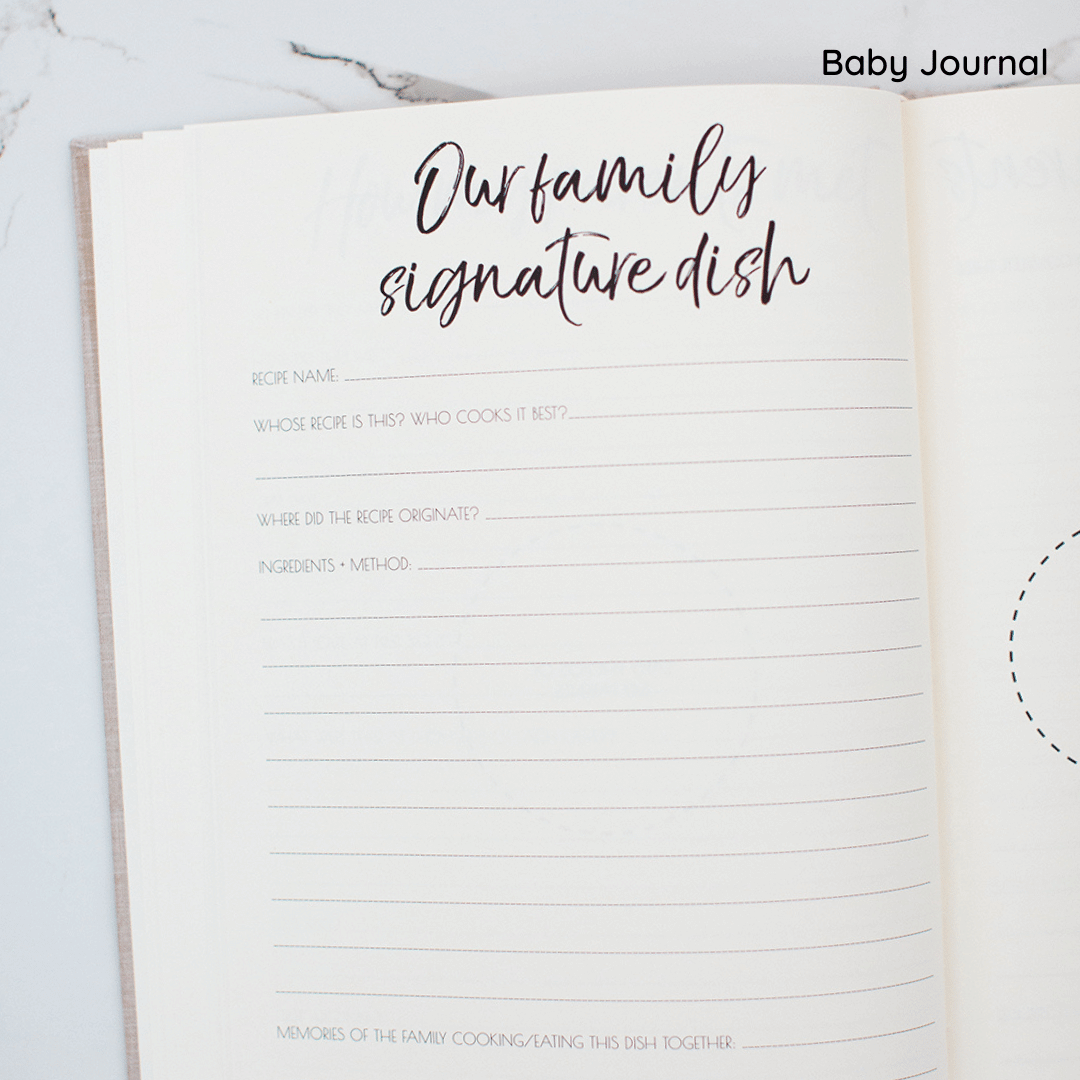 Baby Journal
Our family
signature dish
RECIPE NAME:
WHOSE RECIPE IS THIS? WHO COOKS IT BEST?
WHERE DID THE RECIPE ORIGINATE?
INGREDIENTS + METHOD:
MEMORIES OF THE FAMILY COOKING/EATING THIS DISH TOGETHER: